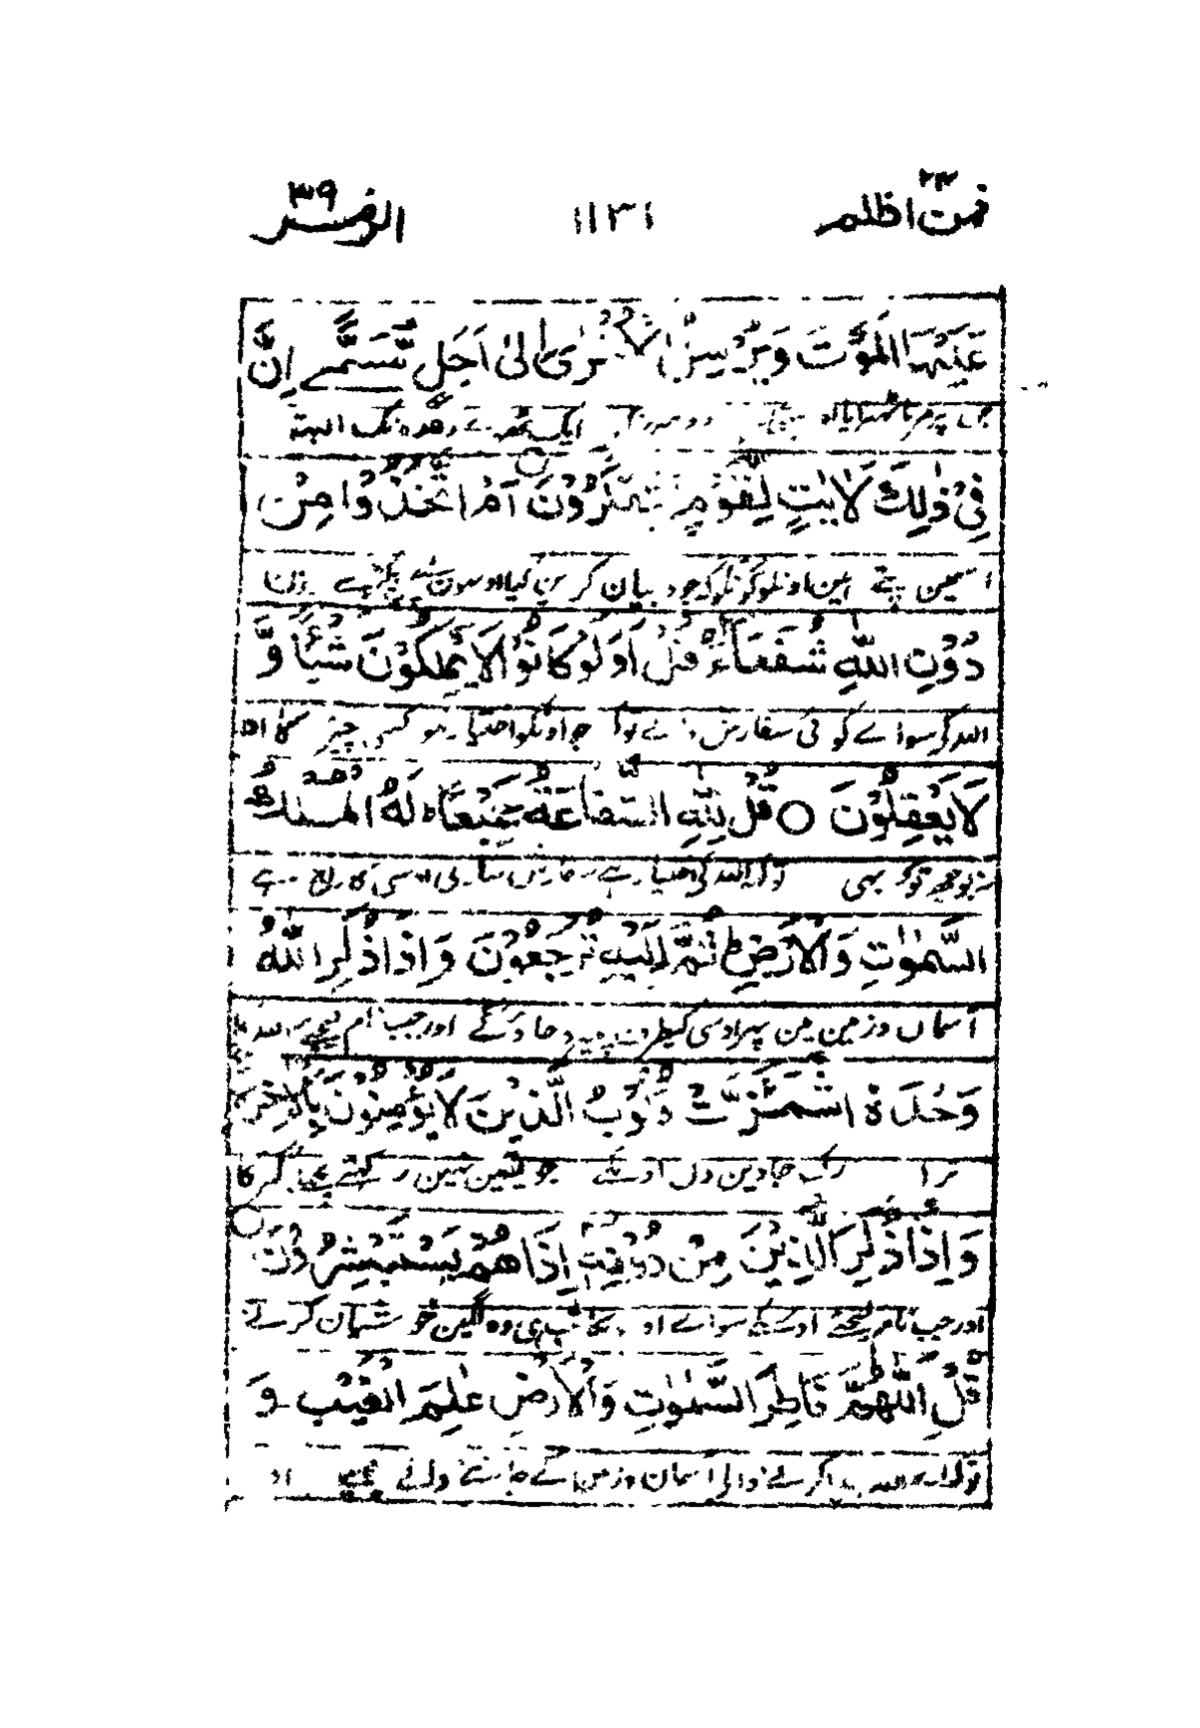 فمن اظلم ٢٤ ١١٣١ الزمر ٣٩
عَلَيْهَا الْمَوْتَ وَيُرْسِلُ الْأُخْرٰىٓ اِلٰٓى اَجَلٍ مُّسَمًّے اِنَّ
جس پر مرنا ٹھہرایا اور ایک ٹھہرے وعدہ تک البتہ
فِيْ ذٰلِكَ لَاٰيٰتٍ لِّقَوْمٍ يَّتَفَكَّرُوْنَ ○ اَمِ اتَّخَذُوْا مِنْ
اسمین پتے ہین اونلوگونکو کہ جو دہیان کرین کیا اونہون نے پکڑے ہین
دُوْنِ اللّٰهِ شُفَعَآءَ قُلْ اَوَلَوْ كَانُوْا لَا يَمْلِكُوْنَ شَيْئًا وَّ
اللہ کے سواے کوئی سفارش تو کہہ جو اونکو اختیار نہو کسی چیز کا اور
لَا يَعْقِلُوْنَ ○ قُلْ لِّلّٰهِ الشَّفَاعَةُ جَمِيْعًا لَهٗ مُلْكُ
نہ بوجھ توکہ بھی تو کہہ اللہ کی اختیار ہے سفارش ساری اوسی کا راج ہے
السَّمٰوٰتِ وَالْاَرْضِ ط ثُمَّ اِلَيْهِ تُرْجَعُوْنَ وَاِذَا ذُكِرَ اللّٰهُ
آسمان وزمین مین پہر اوسی کیطرف پہیرے جاوگے اور جب نام لیجے اللہ کا
وَحْدَهُ اشْمَاَزَّتْ قُلُوْبُ الَّذِيْنَ لَا يُؤْمِنُوْنَ بِالْاٰخِرَةِ
نرا رک جاوین دل اونکے جو یقین نہین رکہتے پچہلے گہر کا
وَاِذَا ذُكِرَ الَّذِيْنَ مِنْ دُوْنِهٖ اِذَا هُمْ يَسْتَبْشِرُوْنَ ○
اور جب نام لیجئے اوسکے سواے اورونکا تب ہی وہ لگین خوشیان کرنے
قُلِ اللّٰهُمَّ فَاطِرَ السَّمٰوٰتِ وَالْاَرْضِ عٰلِمَ الْغَيْبِ وَ
تو کہہ اے اللہ پیدا کرنے والے آسمان وزمین کے جاننے والے چھپے اور